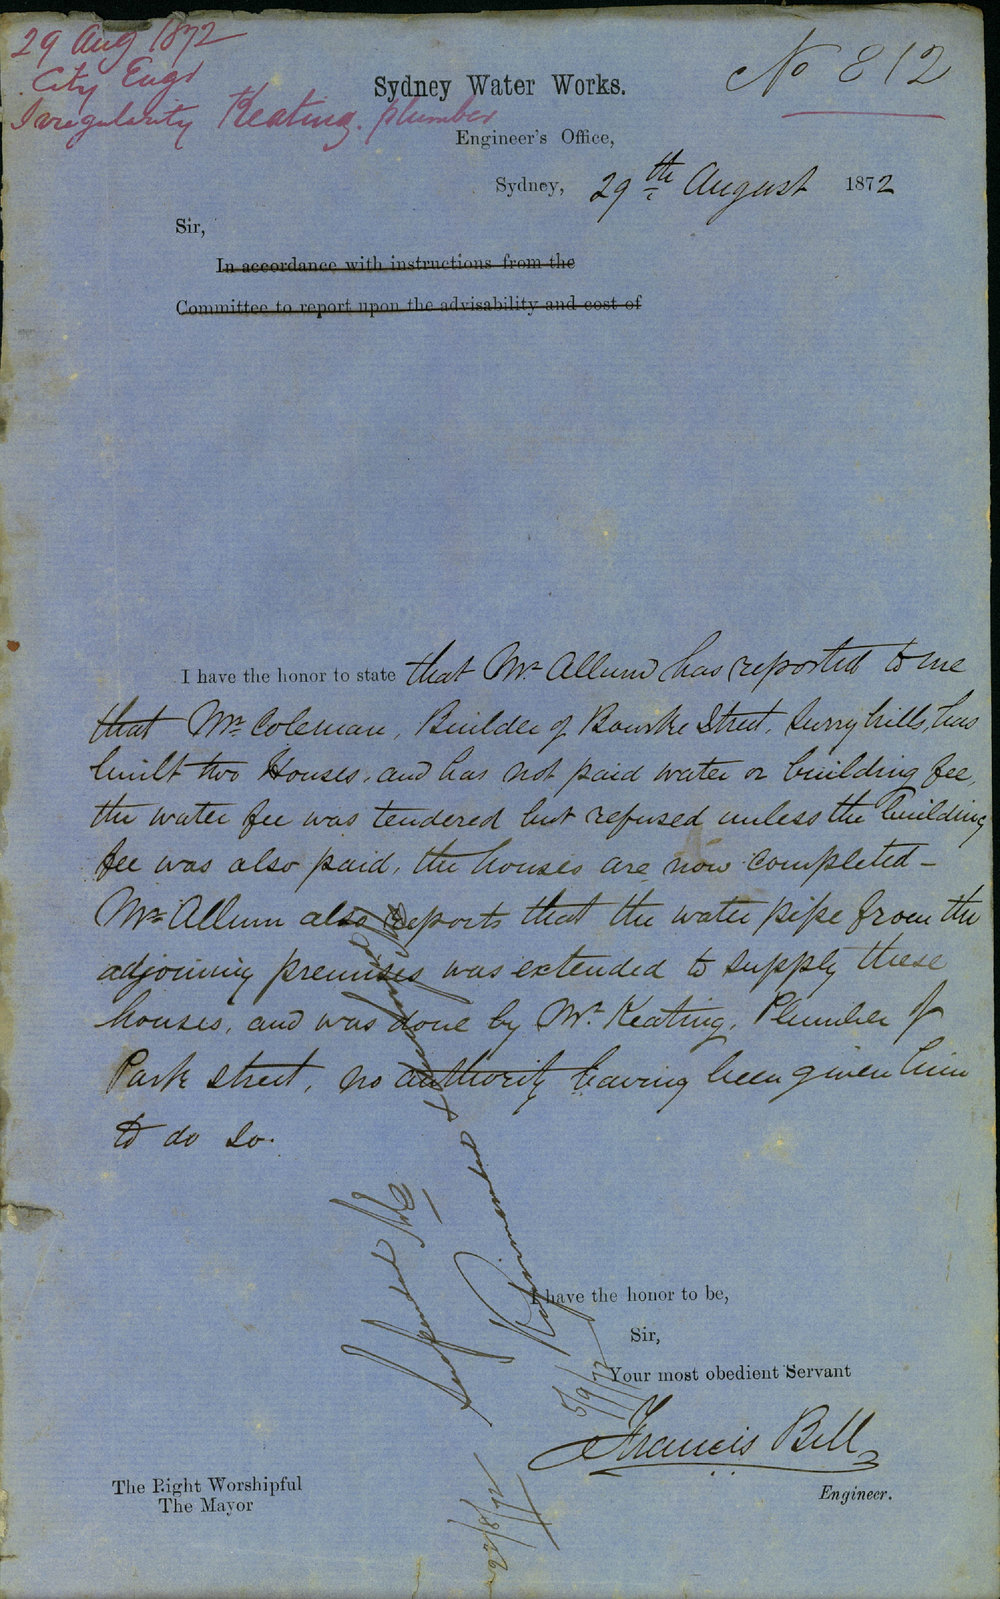 29 Aug 1872
City Engr
Irregularity Keating. plumber
No 812
Sydney Water Works.
Engineer's Office,
Sydney, 29th August 1872
Sir,
In accordance with instructions from the
Committee to report upon the advisability and cost of
I have the honor to state that Mr Allum has reported to me
that Mr Coleman, Builder of Bourke Street, Surry hills, has
built two Houses, and has not paid water or building fee,
the water fee was tendered but refused unless the building
fee was also paid, the houses are now completed -
Mr Allum also reports that the water pipe from the
adjoining premises was extended to supply these
houses, and was done by Mr Keating, Plumber of
Park street, no authority having been given him
to do so.
I have the honor to be,
Sir,
Your most obedient Servant
Francis Bell
Engineer.
The Right Worshipful
The Mayor
Suspended
Reprimanded
5/9/72